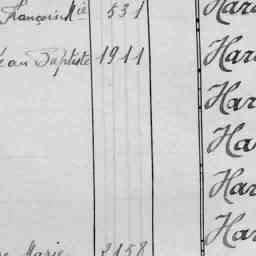 Françoise Mie 531 Har
Jean Baptiste 1911 Har
Har
Har
Har
Har
Marie 2158